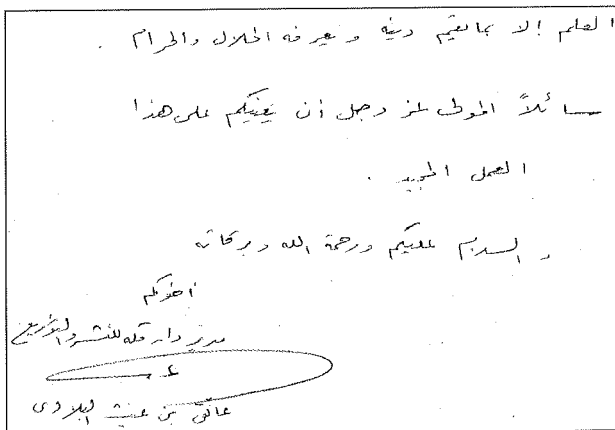 العلم إلا بما يقيم دينه ويعرفه الحلال والحرام .
سائلاً المولى عز وجل أن يعينكم على هذا
العمل المجيد .
والسلام عليكم ورحمة الله وبركاته
أخوكم
مدير دار مكة للنشر والتوزيع
عاتق بن غيث البلادي